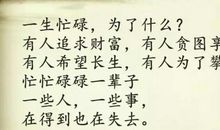 一生忙碌，为了什么？
有人追求财富，有人贪图享
有人希望长生，有人为了攀
忙忙碌碌一辈子
一些人，一些事，
在得到也在失去。